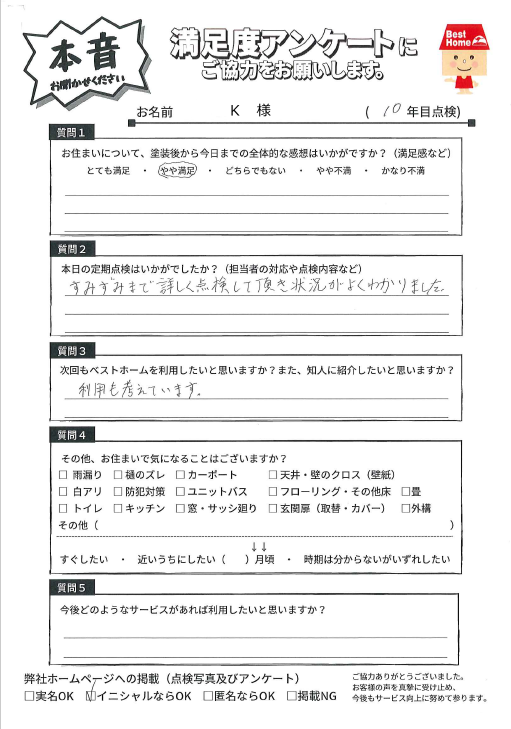 本音
お聞かせください
満足度アンケートに
ご協力をお願いします。
Best
Home
お名前 K 様 ( 10 年目点検)
質問1
お住まいについて、塗装後から今日までの全体的な感想はいかがですか？（満足感など）
とても満足 ・ やや満足 ・ どちらでもない ・ やや不満 ・ かなり不満
質問2
本日の定期点検はいかがでしたか？（担当者の対応や点検内容など）
すみずみまで詳しく点検して頂き状況がよくわかりました。
質問3
次回もベストホームを利用したいと思いますか？また、知人に紹介したいと思いますか？
利用も考えています。
質問4
その他、お住まいで気になることはございますか？
□ 雨漏り □ 樋のズレ □ カーポート □ 天井・壁のクロス（壁紙）
□ 白アリ □ 防犯対策 □ ユニットバス □ フローリング・その他床 □畳
□ トイレ □ キッチン □ 窓・サッシ廻り □ 玄関扉（取替・カバー） □外構
その他（ ）
↓↓
すぐしたい ・ 近いうちにしたい（ ）月頃 ・ 時期は分からないがいずれしたい
質問5
今後どのようなサービスがあれば利用したいと思いますか？
弊社ホームページへの掲載（点検写真及びアンケート）
□実名OK ☑イニシャルならOK □匿名ならOK □掲載NG
ご協力ありがとうございました。
お客様の声を真摯に受け止め、
今後もサービス向上に努めて参ります。